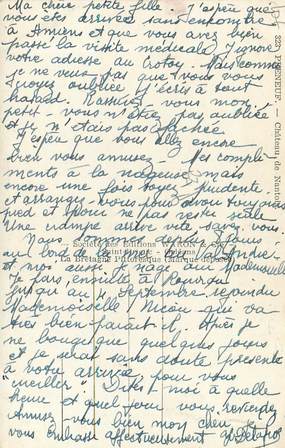 Ma chère petite fille. J'espère que
vous êtes arrivée sans encombre
à Amiens et que vous avez bien
passé la visite médicale. J'ignore
votre adresse au Crotoy. Mais comme
je ne veux pas que vous vous
croyez oubliée j'écris à tout
hasard. Rassurez vous mon
petit - vous n'êtes pas oubliée
et je n'étais pas fâchée
J'espère que vous allez encore
bien vous amuser - Mes compli
ments à la nageuse, mais
encore une fois soyez prudente
et arrangez-vous pour avoir toujours
pied et pour ne pas rester seule
Une crampe arrive vite savez-vous.
Nous sommes tous
au bord de la mer
et moi aussi je nage
Je pars ensuite à
jusqu'au Septembre rejoindre
Mademoiselle Nicou qui va
très bien paraît-il. Après je
ne bouge que quelques jours
et je serai sans doute présente
à votre arrivée pour vous
"accueillir" Dites-moi à quelle
heure et quel jour vous
Amusez vous bien mon
vous embrasse affectueusement
222. PLÉNEUF. — Château de Nantois
Société des Editions WARON
La Bretagne Pittoresque